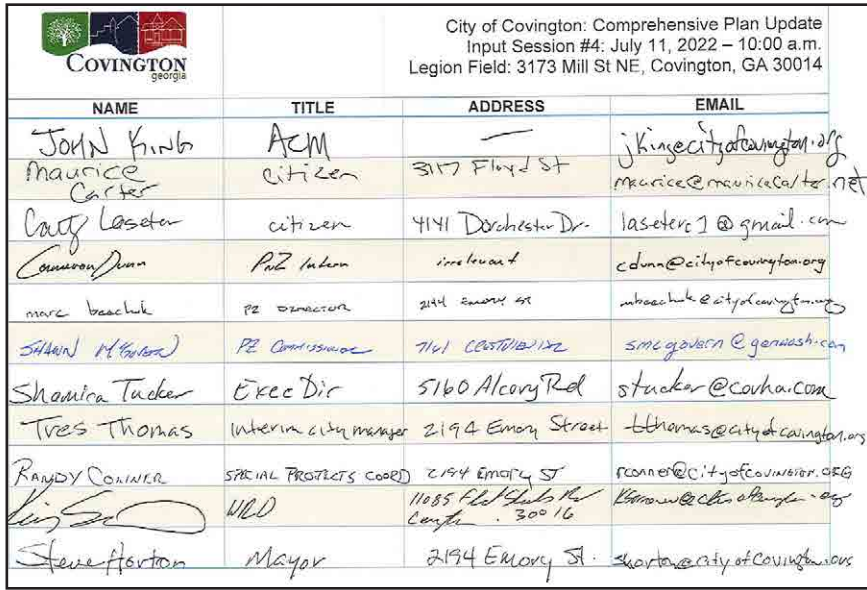 COVINGTON
georgia
City of Covington: Comprehensive Plan Update
Input Session #4: July 11, 2022 – 10:00 a.m.
Legion Field: 3173 Mill St NE, Covington, GA 30014
NAME TITLE ADDRESS EMAIL
JOHN KING ACM — jking@cityofcovington.org
Maurice Carter citizen 3117 Floyd St maurice@mauricecarter.net
Laseter citizen 4141 Dorchester Dr. laseterc1@gmail.com
Cameron Dunn PnZ Intern irrelevant cdunn@cityofcovington.org
marc beechuk PZ DIRECTOR 2194 emory st
SHAWN McGovern PZ Commissioner 7161 smcgovern@genwash.com
Shamica Tucker Exec Dir 5160 Alcovy Rd stucker@covha.com
Tres Thomas Interim city manager 2194 Emory Street tthomas@cityofcovington.org
RANDY CONNER SPECIAL PROJECTS COORD 2194 EMORY ST rconner@cityofcovington.ORG
11085 Flat Shoals Rd
30016
Steve Horton Mayor 2194 Emory St. shorton@cityofcovington.org